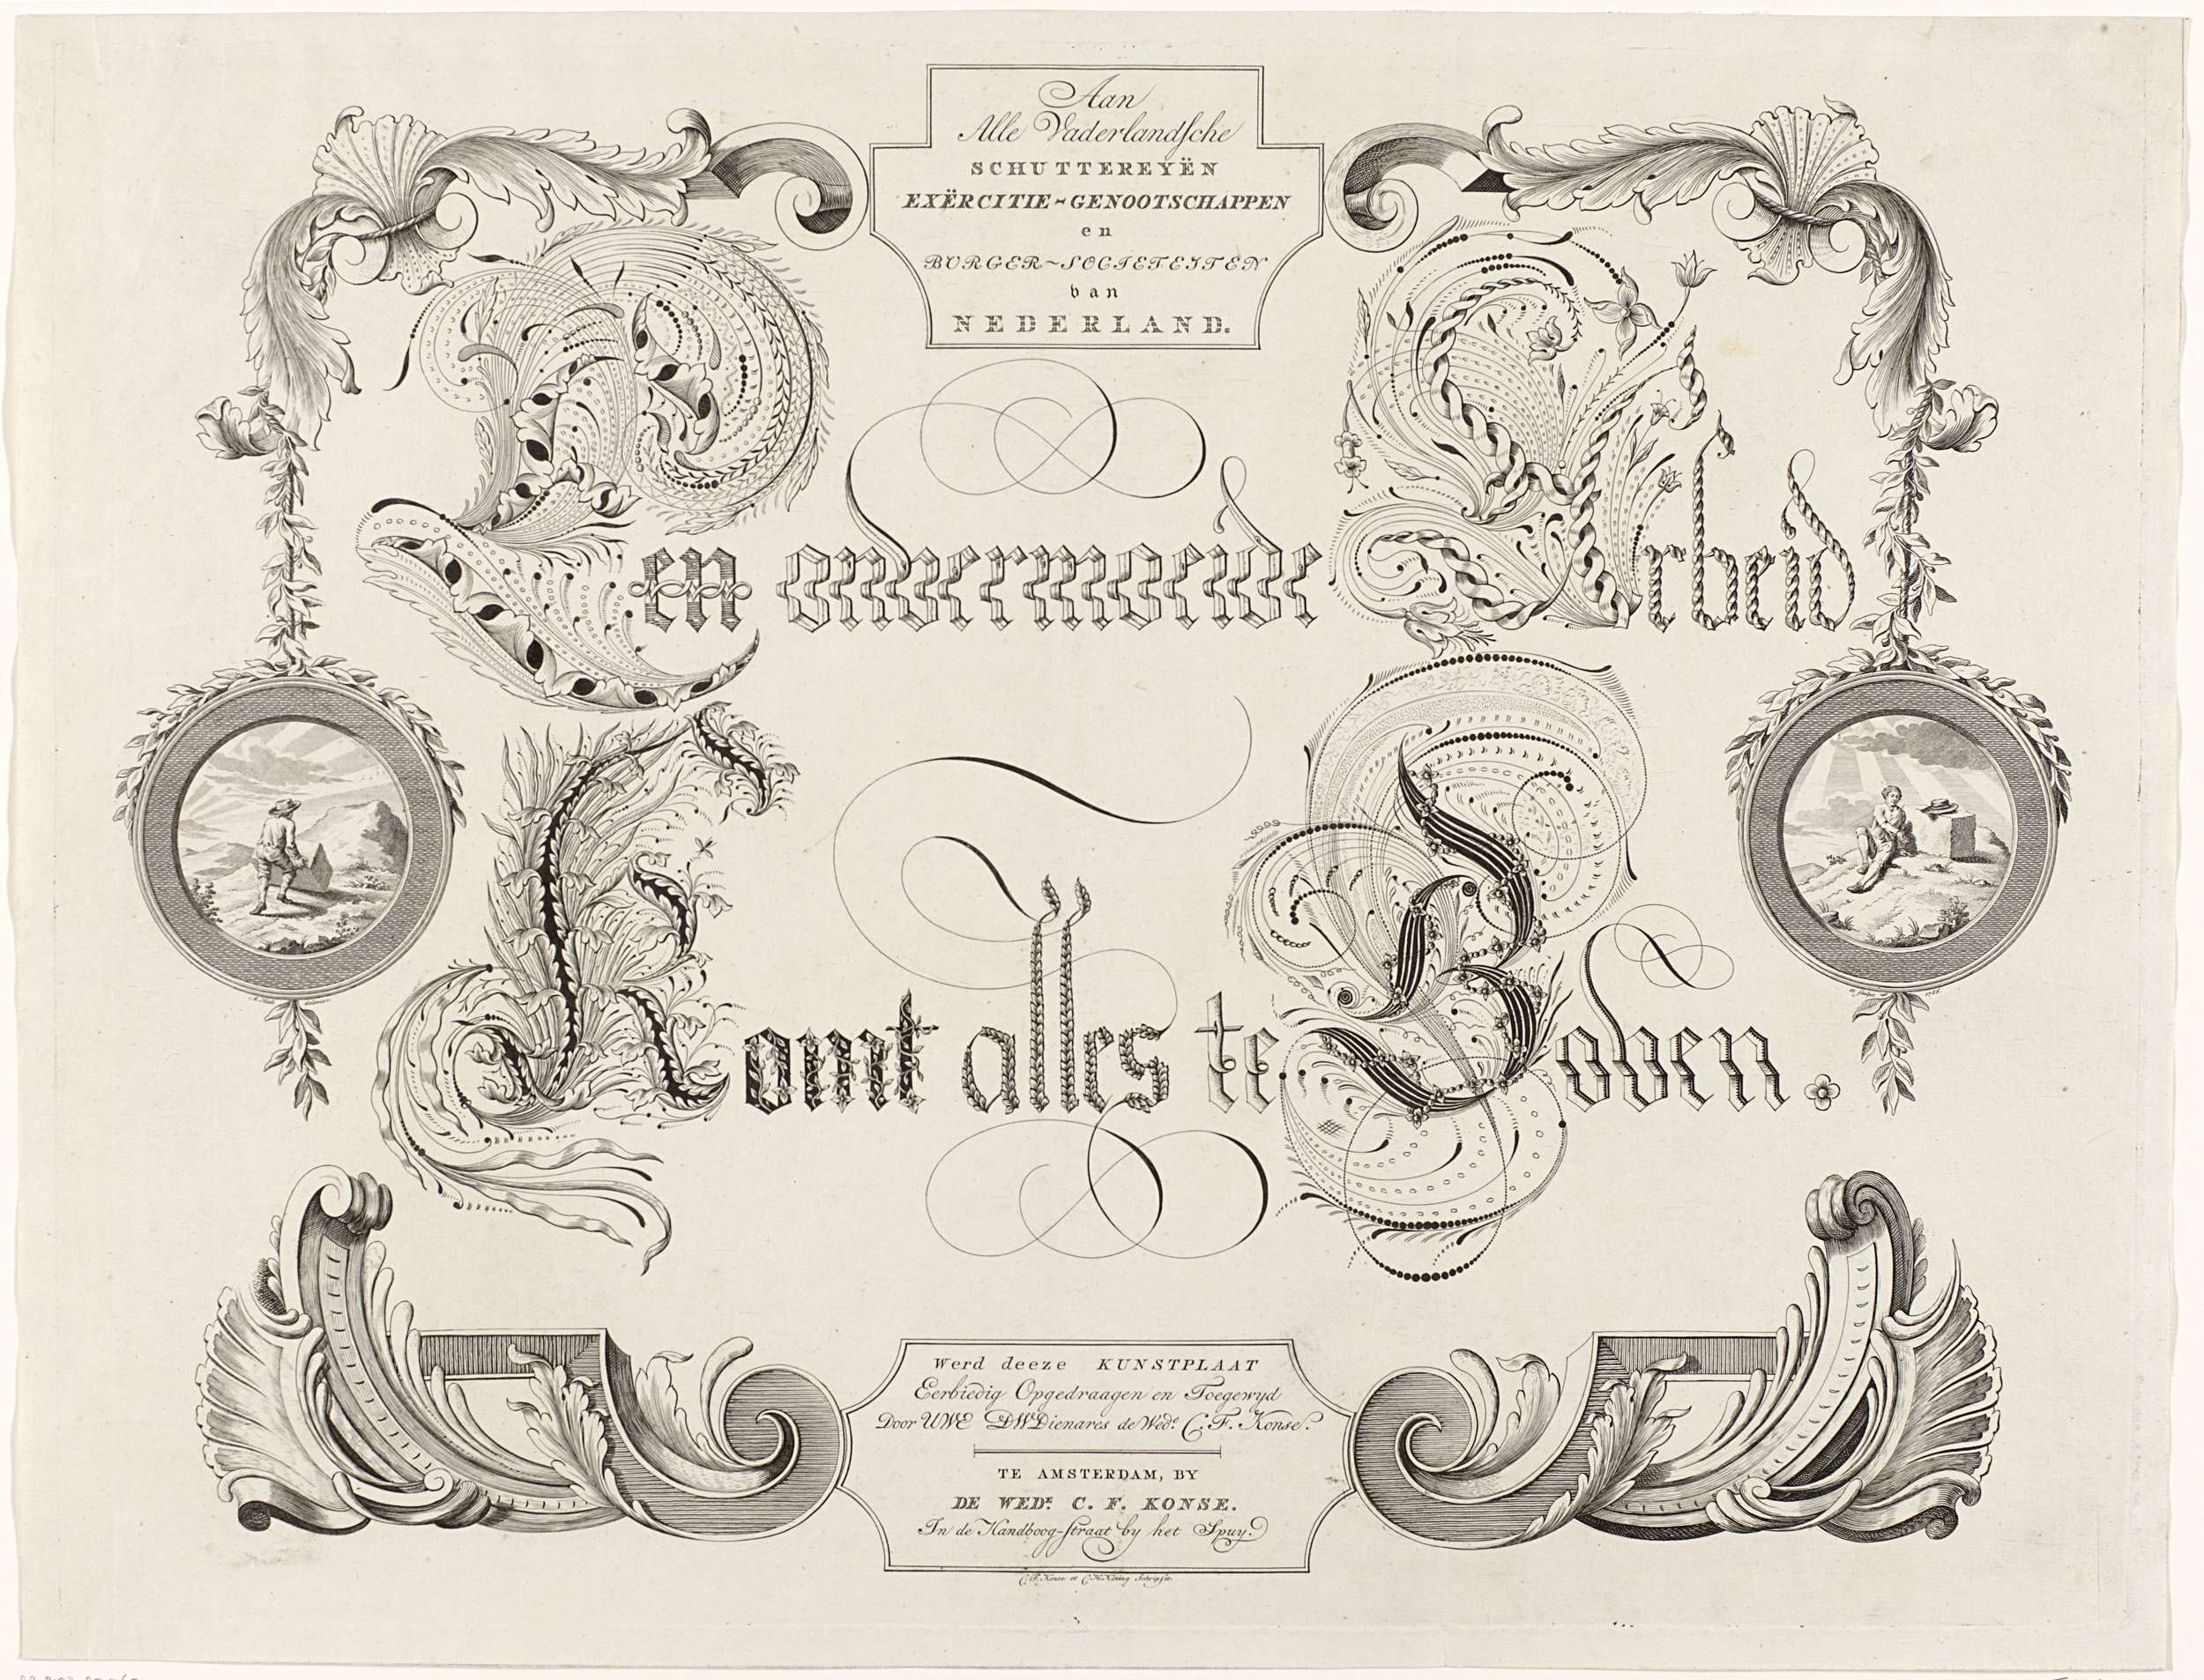 Aan
Alle Vaderlandsche
SCHUTTEREYËN
EXËRCITIE-GENOOTSCHAPPEN
en
BURGER-SOCIETEITEN
van
NEDERLAND.
Een onvermoeide Arbeid
Komt alles te Boven.
Werd deeze KUNSTPLAAT
Eerbiedig Opgedraagen en Toegewyd
Door UWE DWDienares de Wed.e C. F. Konse.
TE AMSTERDAM, BY
DE WED.E C. F. KONSE.
In de Handboog-straat by het Spuy.
C. F. Konse et C. H. Koning Scripsit.